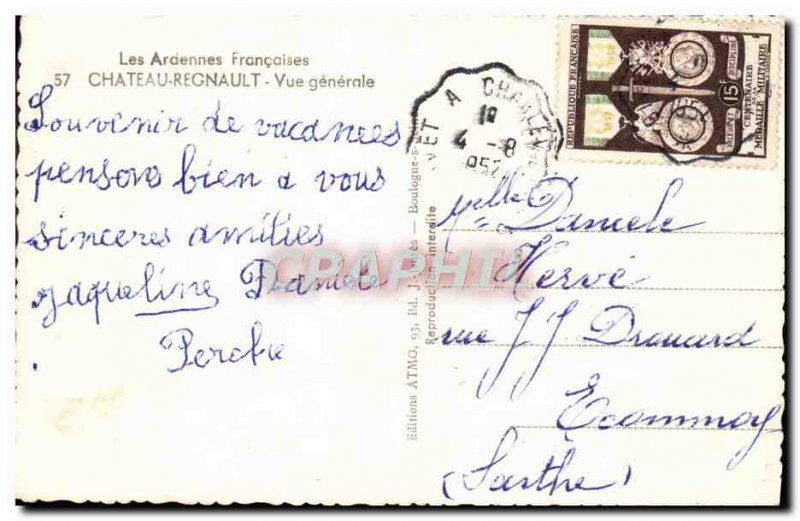 Les Ardennes Françaises
57 CHATEAU-REGNAULT - Vue générale
Souvenir de vacances
pensons bien a vous
sinceres amities
Jaqueline Daniele
Perche
Editions ATMO, 93, Bd. J. - Boulogne-s
Reproduction interdite
ET A CHARLEV
18
4 -8
1952
REPUBLIQUE FRANÇAISE
1952
VALEUR DISCIPLINE
15F
CENTENAIRE
DE LA
MEDAILLE MILITAIRE
Melle Daniele
Hervé
rue J J Drouard
Ecommoy
(Sarthe)
CRAPHIL